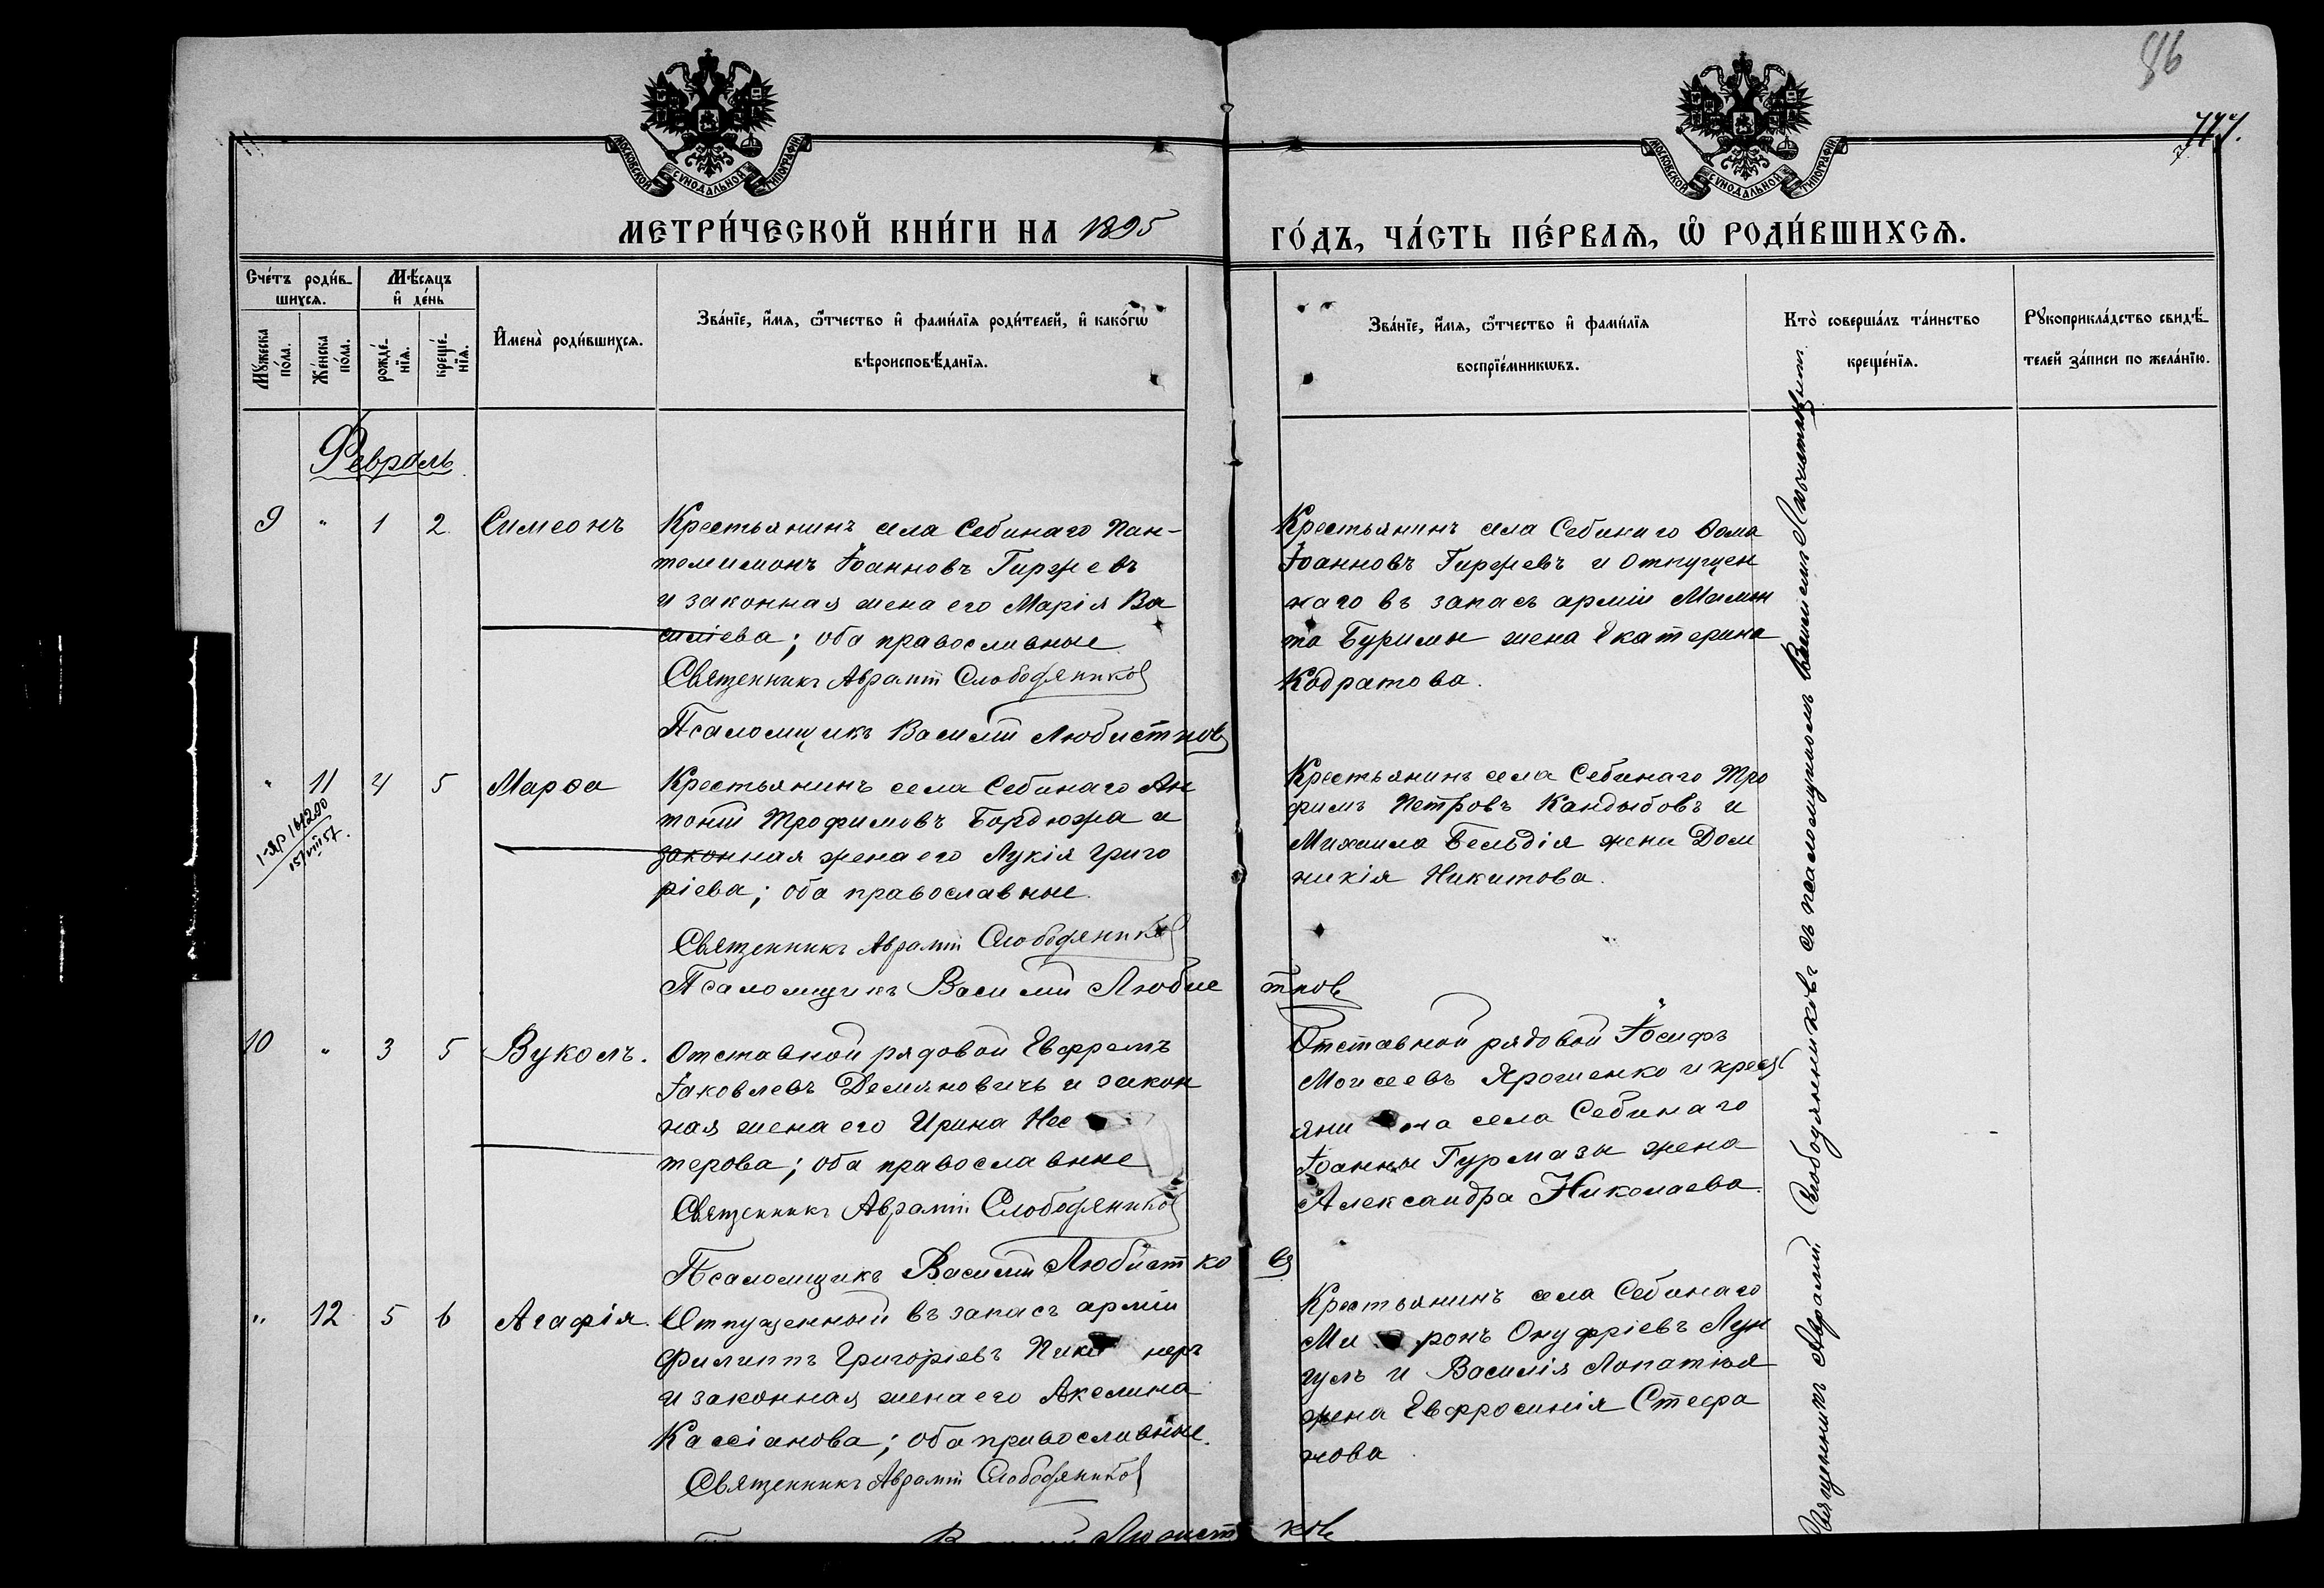 86
777.
МОСКОВСКОЙ СѴНОДАЛЬНОЙ ТИПОГРАФІИ
МОСКОВСКОЙ СѴНОДАЛЬНОЙ ТИПОГРАФІИ
МЕТРИ́ЧЕСКОЙ КНИ́ГИ НА 1895 ГО́ДЪ, ЧА́СТЬ ПЕ́РВАѦ, Ѡ РОДИ́ВШИХСѦ.
Сче́тъ роди́в-
шихсѧ.
Мꙋ́жеска по́ла.
Же́нска по́ла.
Мѣ́сѧцъ
и҆ де́нь
рожде́-
нїѧ.
креще́-
нїѧ.
И҆мена̀ роди́вшихсѧ.
Зва́нїе, и҆́мѧ, ѻ҆́тчество и҆ фами́лїѧ роди́телей, и҆ како́гѡ
вѣроисповѣ́данїѧ.
Зва́нїе, и҆́мѧ, ѻ҆́тчество и҆ фами́лїѧ
воспрїе́мникѡвъ.
Кто̀ соверша́лъ та́инство
креще́нїѧ.
Рꙋкоприкла́дство свидѣ́-
телей за́писи по жела́нїю.
Февраль
9 " 1 2. Симеонъ
Крестьянинъ села Себинаго Пан-
телимонъ Іоанновъ Гиржевъ
и законная жена его Марія Ва
силіева; оба православные
Священникъ Аврамій Слободяников
Псаломщикъ Василій Любистков
Крестьянинъ села Себинаго Ѳома
Іоанновъ Гиржевъ и отпущен
наго въ запасъ арміи Мамон
та Буримы жена Екатерина
Кодратова.
" 11 4 5 Марѳа
15/VIII 57.
Крестьянинъ села Себинаго Ан
тоній Трофимовъ Бордюжа и
законная жена его Лукія Григо
ріева; оба православные.
Священникъ Аврамій Слободяников
Псаломщикъ Василій Любистков
Крестьянинъ села Себинаго Тро
фимъ Петровъ Кандыбовъ и
Михаила Бельдія жена Дом
никія Никитова.
10 " 3 5 Вуколъ.
Отставной рядовой Евфремъ
Іаковлевъ Демяновичъ и закон
ная жена его Ирина Нес
терова; оба православные
Священникъ Аврамій Слободяников
Псаломщикъ Василій Любистков
Отставной рядовой Іосифъ
Моисеевъ Ярошенко и крест
янина села Себинаго
Іоанны Гурмазы жена
Александра Николаева.
" 12 5 6 Агафія.
Отпущенный въ запасъ арміи
Филиппъ Григоріевъ Пикинеръ
и законная жена его Акелина
Кассіанова; оба православные.
Священникъ Аврамій Слободяников
Крестьянинъ села Себинаго
Миронъ Онуфріевъ Лун
гулъ и Василія Лопатюя
жена Евфросинія Стефа
нова
Священникъ Аврамій Слободяниковъ съ псаломщикомъ Василіемъ Любистковымъ.